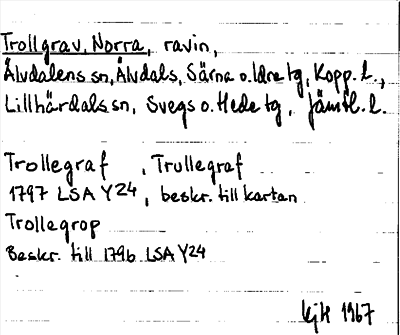 Trollgrav, Norra, ravin,
Älvdalens sn, Älvdals, Särna o. Idre tg, Kopp. l.,
Lillhärdals sn, Svegs o. Hede tg, Jämtl. l.
Trollegraf , Trullegraf
1797 LSA Y24, beskr. till kartan
Trollegrop
Beskr. till 1796 LSA Y24
1967